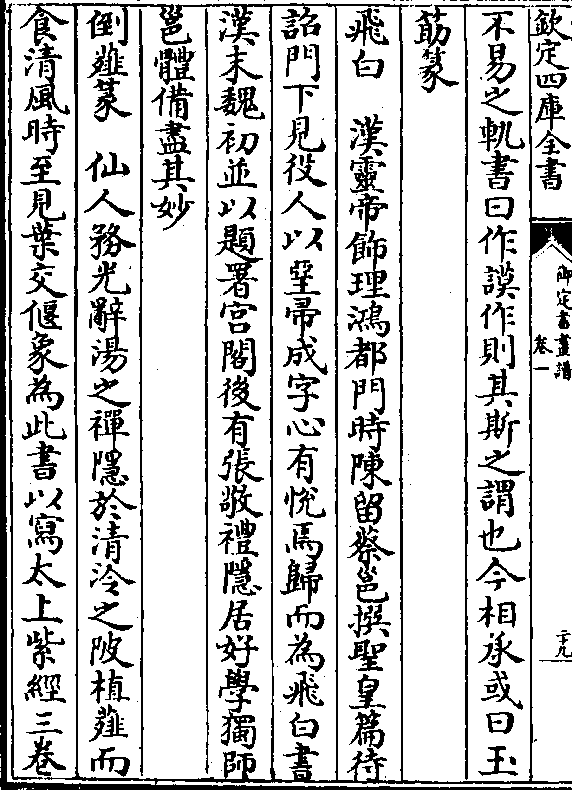 欽定四庫全書
御定書畫譜
卷一
二十九
不易之軌書曰作謨作則其斯之謂也今相承或曰玉
筯篆
飛白　漢靈帝飾理鴻都門時陳留蔡邕撰聖皇篇待
詔門下見役人以堊帚成字心有悅焉歸而為飛白書
漢末魏初並以題署宮閣後有張敬禮隱居好學獨師
邕體備盡其妙
倒薤篆　仙人務光辭湯之禪隱於清泠之陂植薤而
食清風時至見葉交偃象為此書以寫太上紫經三卷